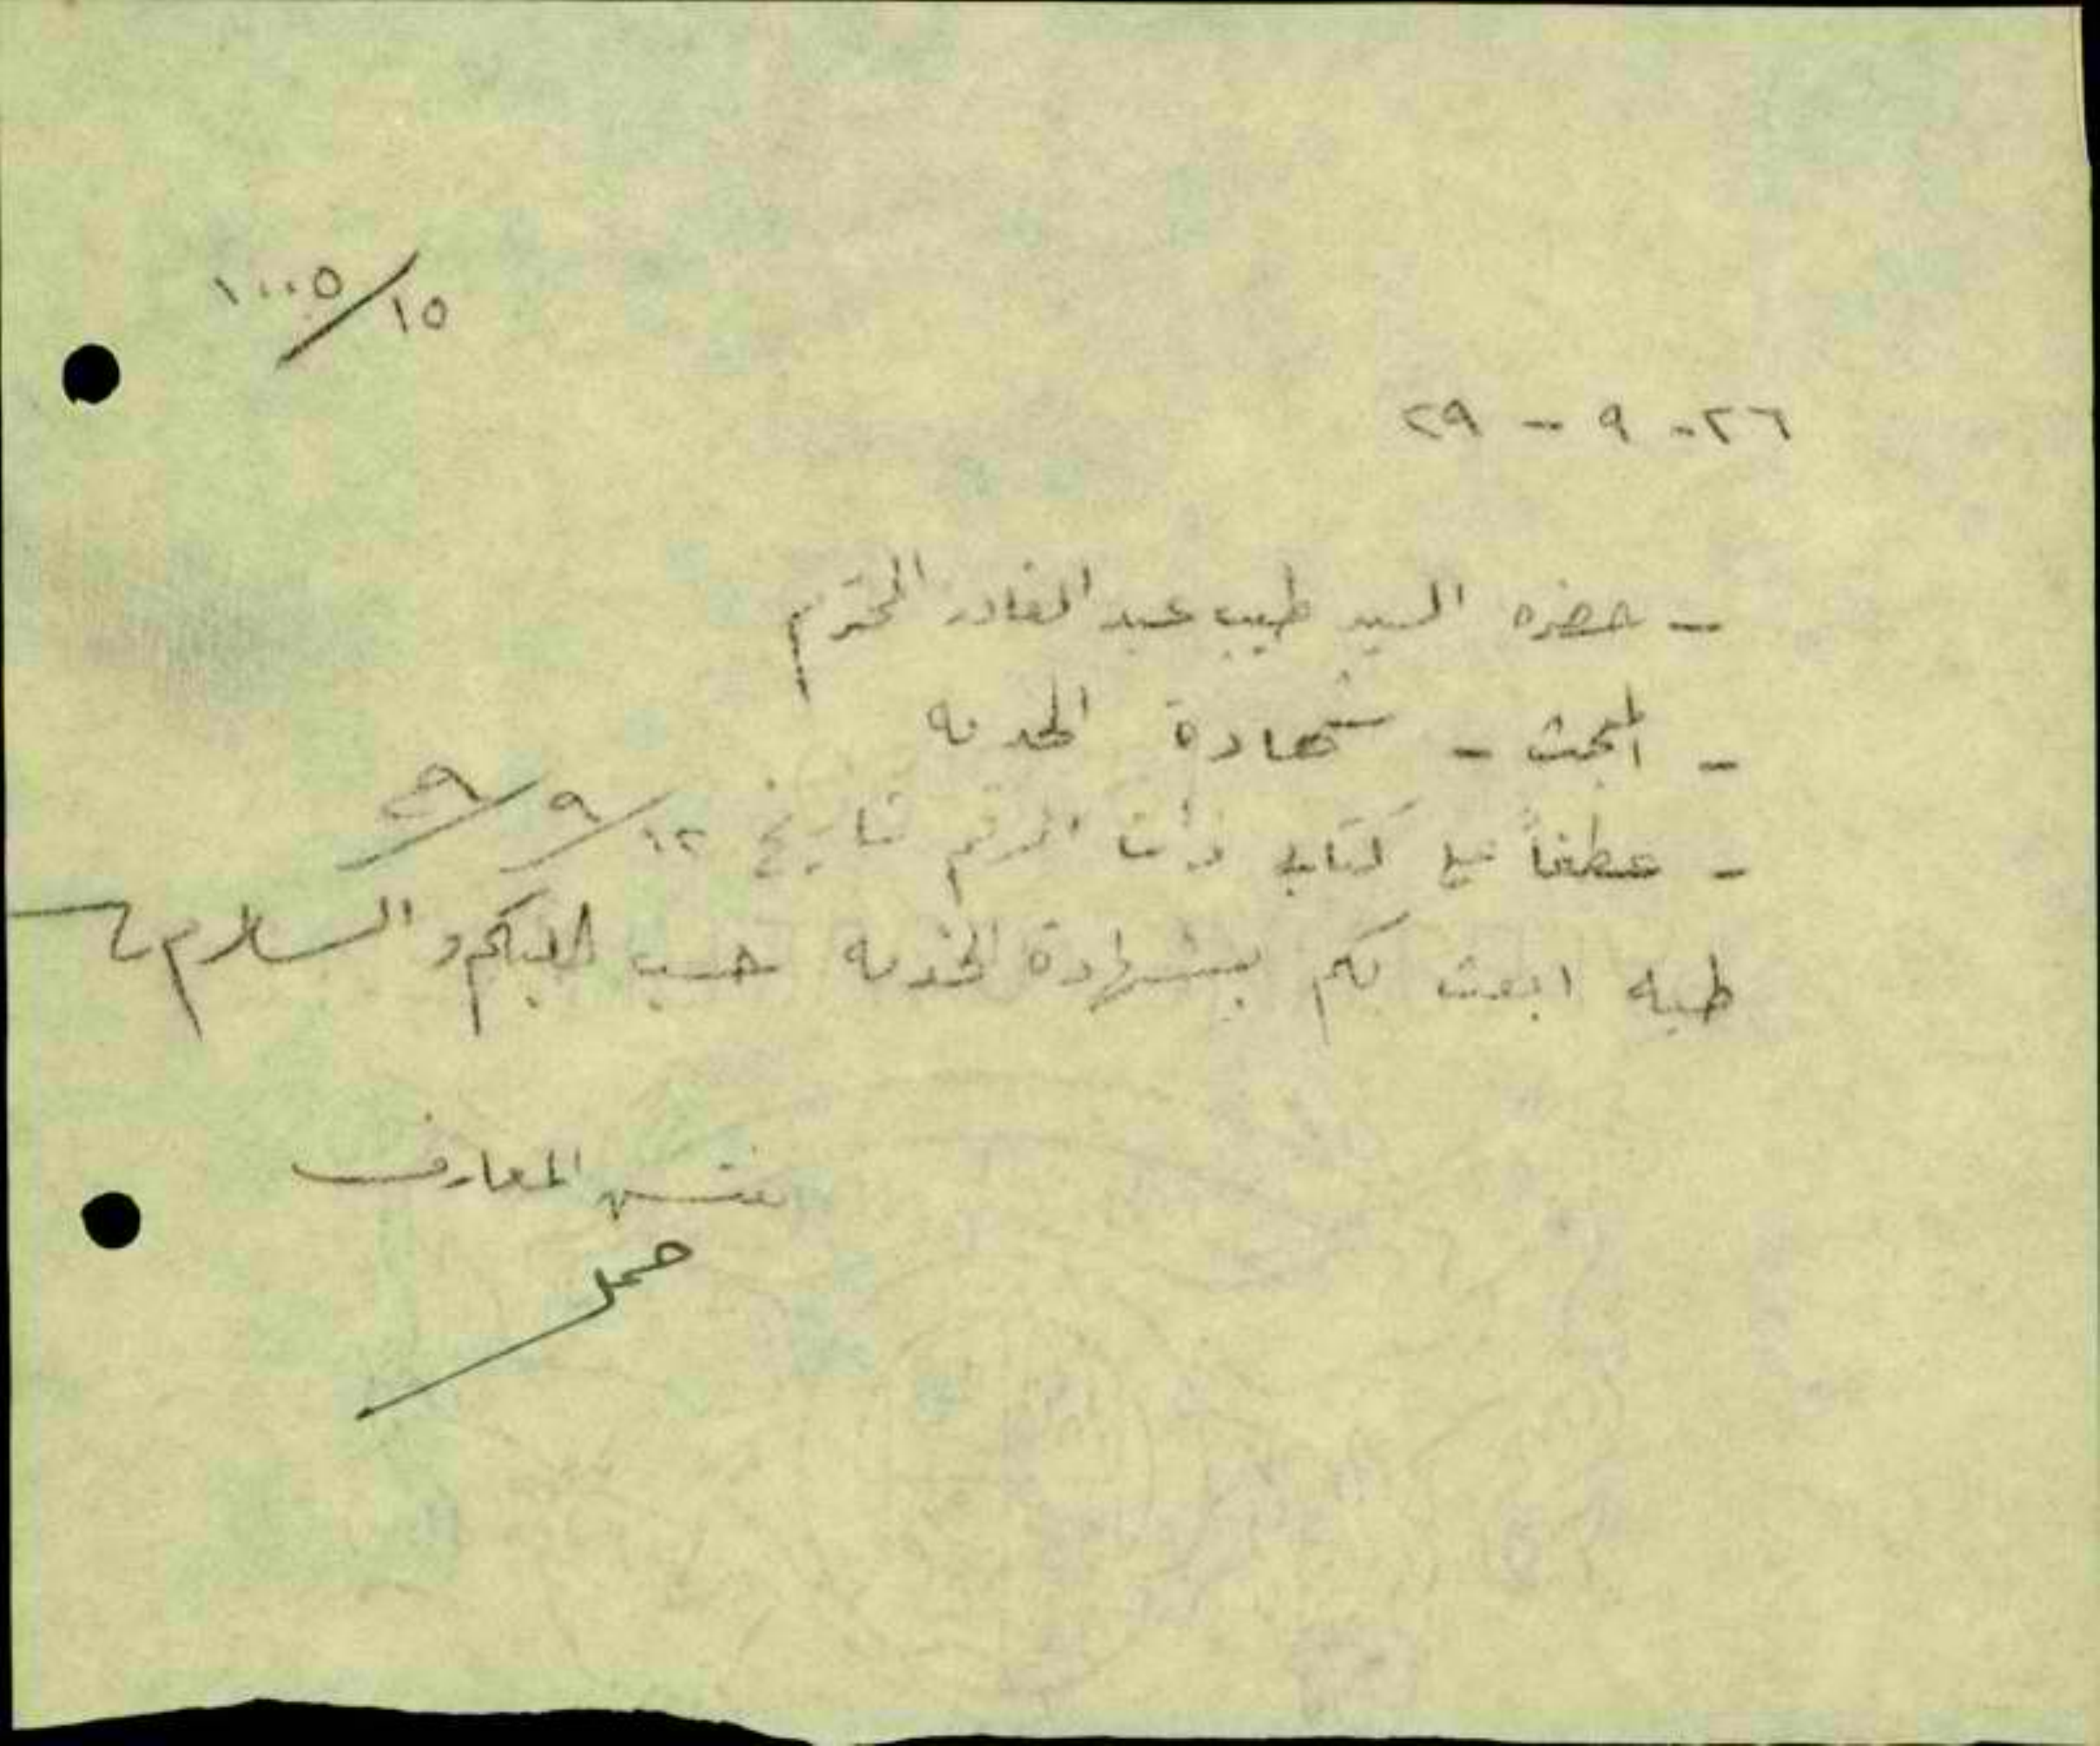 ١٠٠٥/١٥
٢٦-٩-٢٩
- حضره السيد طيب عبد القادر المحترم
- المبحث - شهادة الخدمه
- عطفاً على كتابكم ذات الرقم تاريخ ١٢/٩/٢٩
طيه ابعث لكم بشهادة الخدمه حسب طلبكم والسلام
مفتش المعارف